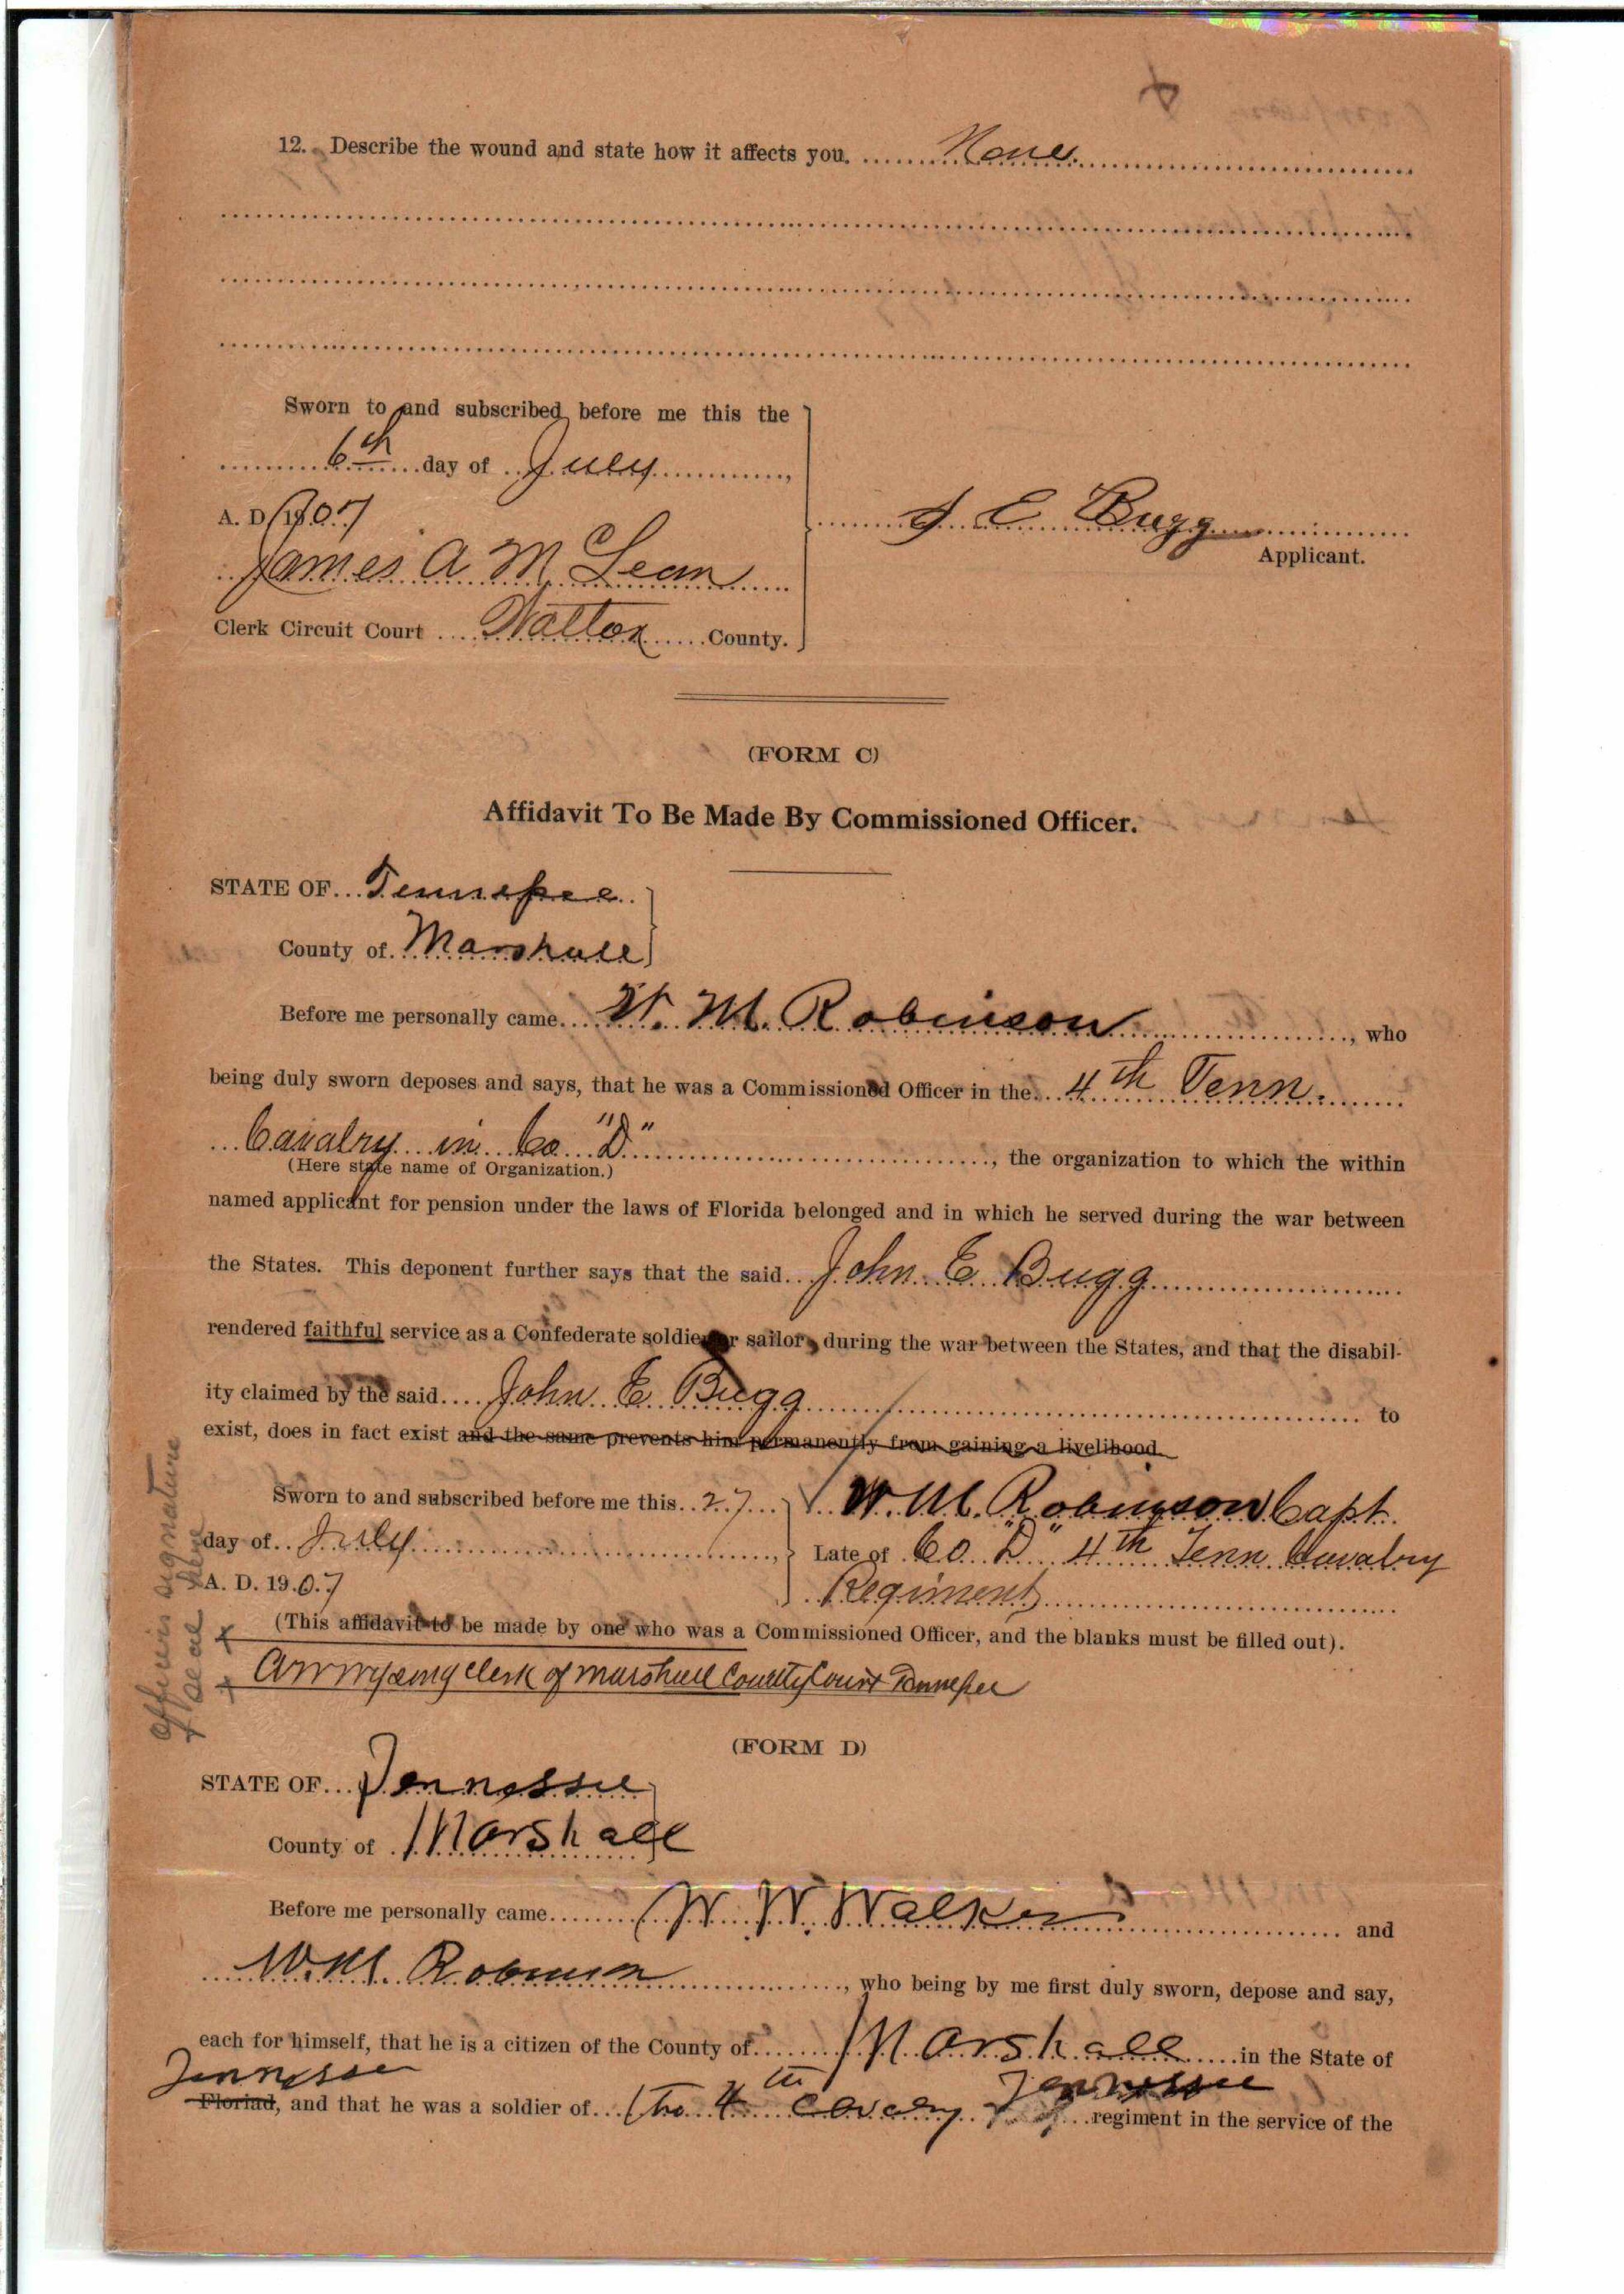 12. Describe the wound and state how it affects you. None.
Sworn to and subscribed before me this the
6th day of July,
A. D. 1907
James A McLean
Clerk Circuit Court Walton County.
J E Bugg
Applicant.
(FORM C)
Affidavit To Be Made By Commissioned Officer.
STATE OF Tennessee
County of Marshall
Before me personally came W. M. Robinson, who
being duly sworn deposes and says, that he was a Commissioned Officer in the 4th Tenn.
Cavalry in Co "D", the organization to which the within
(Here state name of Organization.)
named applicant for pension under the laws of Florida belonged and in which he served during the war between
the States. This deponent further says that the said John E Bugg
rendered faithful service as a Confederate soldier or sailor, during the war between the States, and that the disabil-
ity claimed by the said John E Bugg to
exist, does in fact exist and the same prevents him permanently from gaining a livelihood.
Sworn to and subscribed before me this 27
day of July,
A. D. 1907
W. M. Robinson Capt.
Late of Co. "D" 4th Tenn Cavalry
Regiment
(This affidavit to be made by one who was a Commissioned Officer, and the blanks must be filled out).
clerk of Marshall County Court Tennessee
Officers signature
& Seal here
(FORM D)
STATE OF Tennessee
County of Marshall
Before me personally came W. W. Walker and
W. M. Robinson, who being by me first duly sworn, depose and say,
each for himself, that he is a citizen of the County of Marshall in the State of
Tennessee
Floriad, and that he was a soldier of the 4th Cavalry Tennessee regiment in the service of the